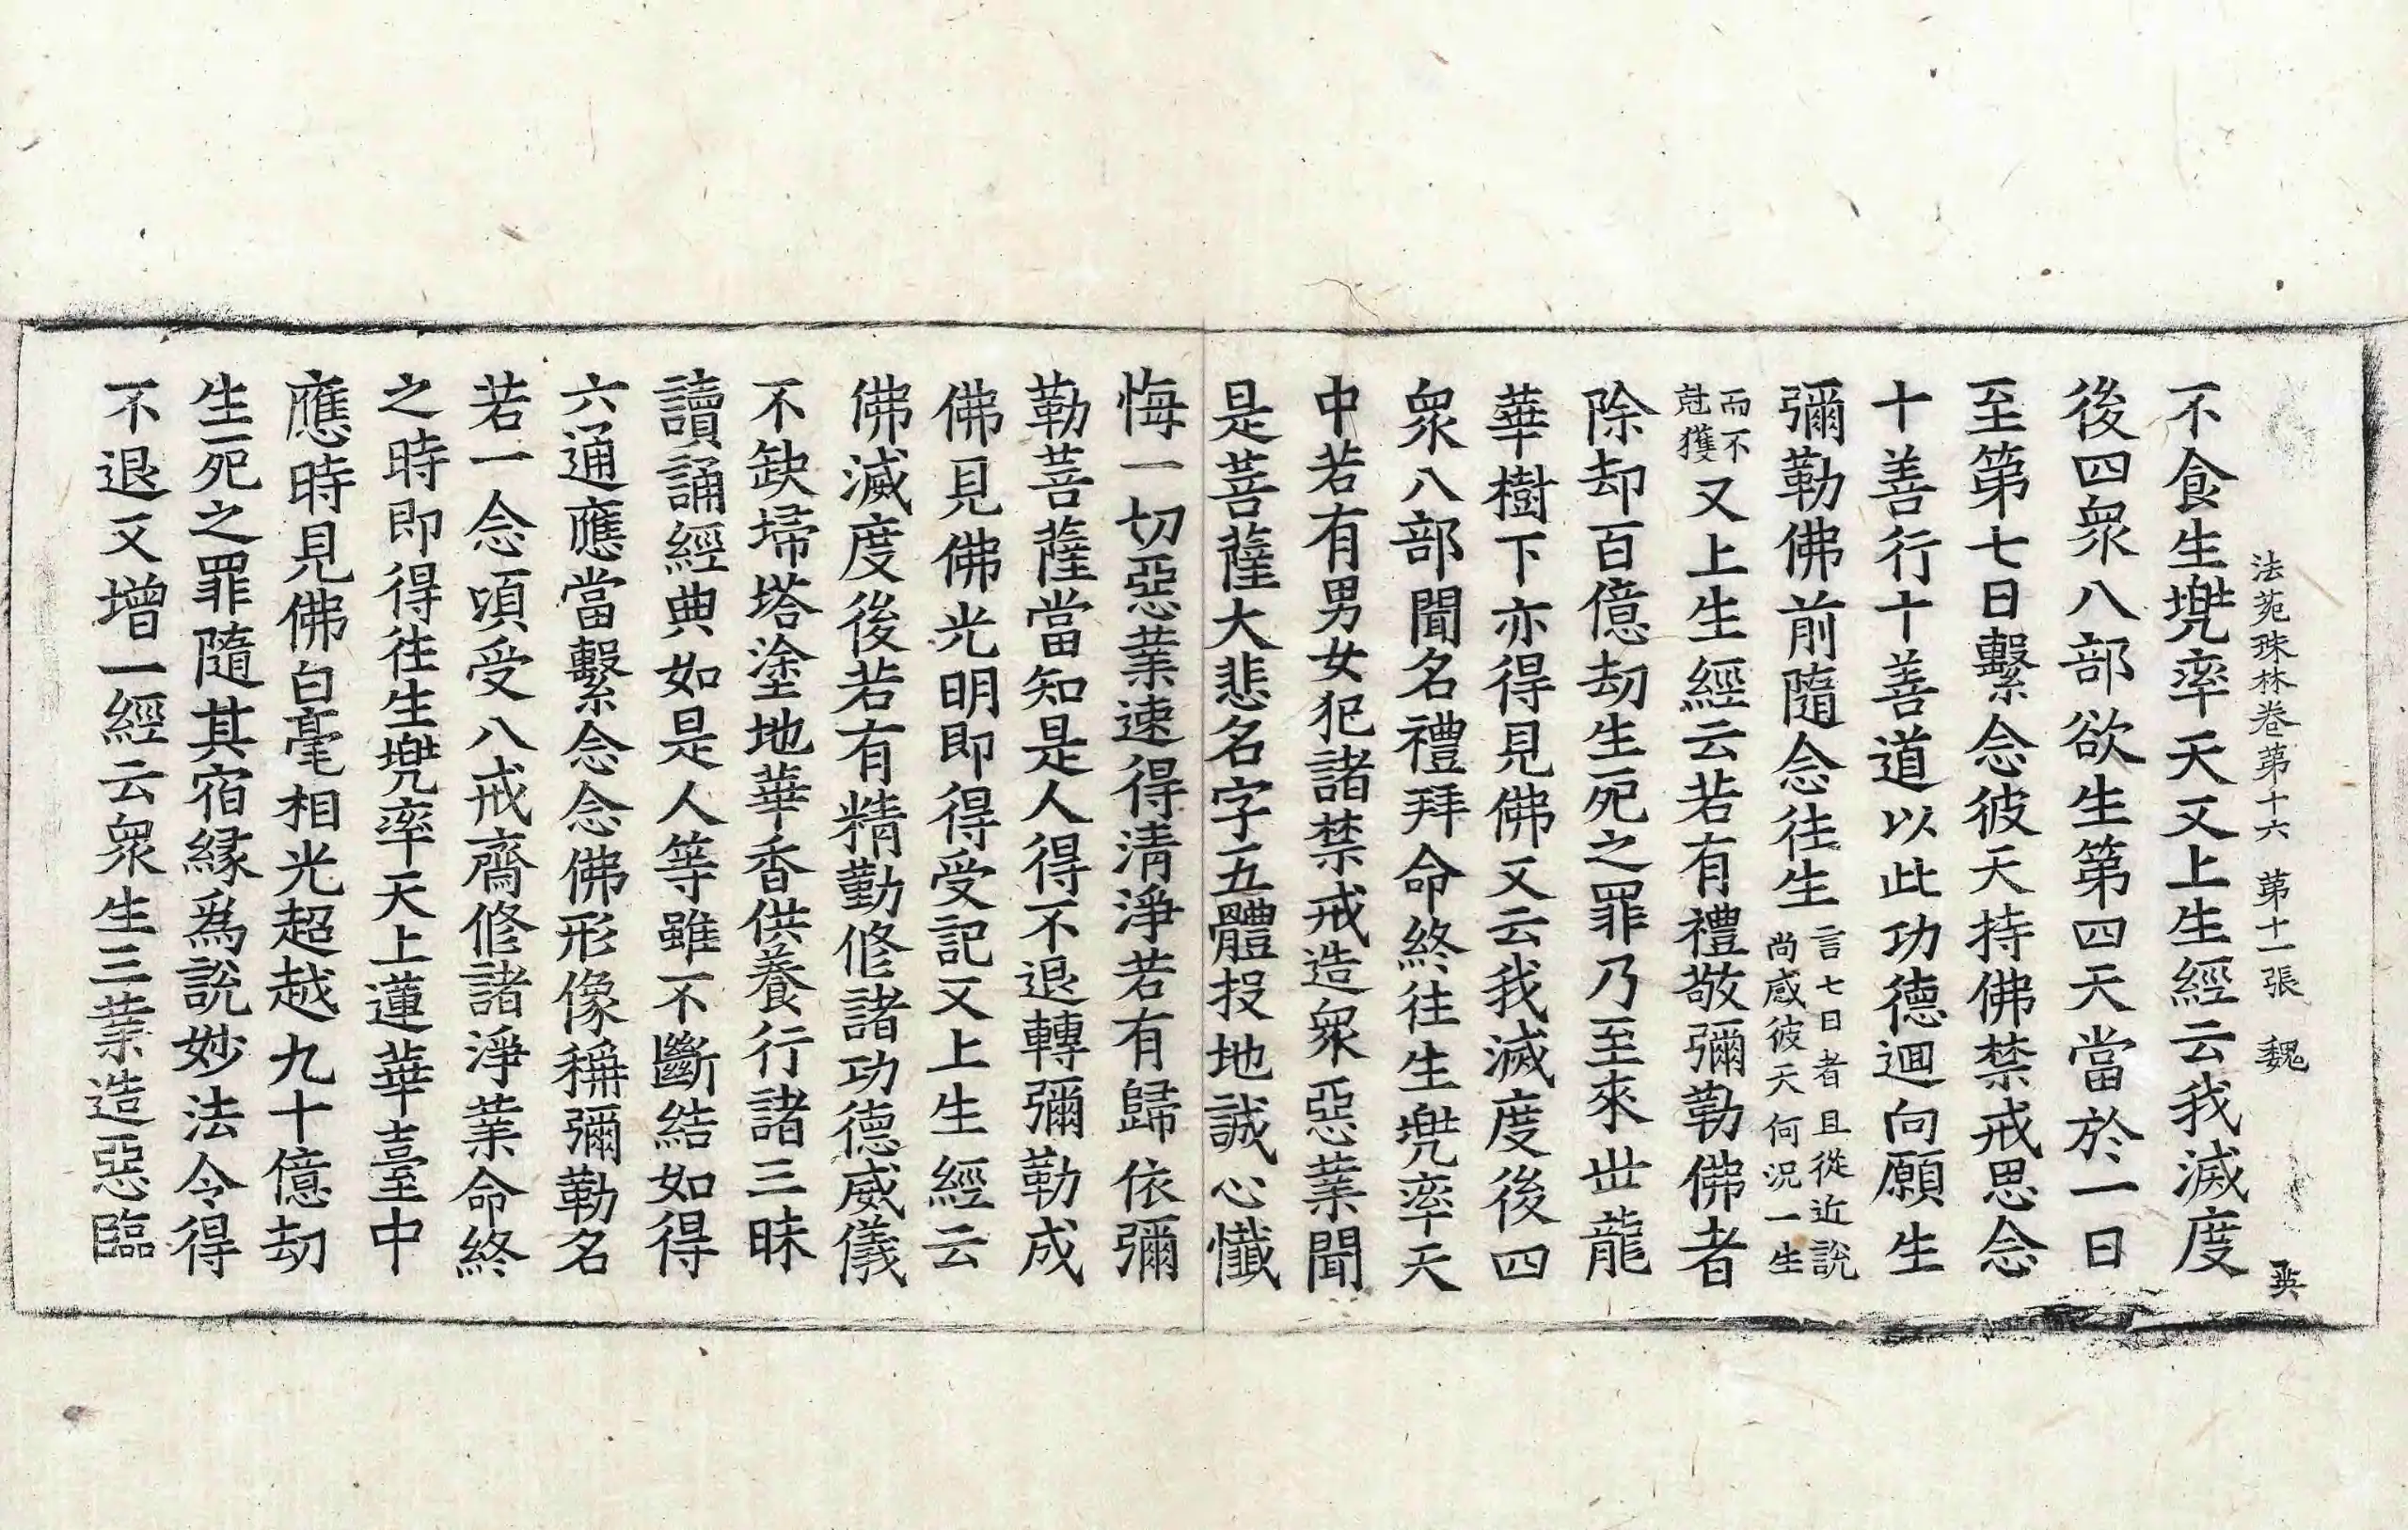 法苑珠林卷第十六 第十一張 魏
不食生兠率天又上生經云我滅度
後四衆八部欲生第四天當於一日
至第七日繫念彼天持佛禁戒思念
十善行十善道以此功德迴向願生
彌勒佛前隨念往生言七日者且從近說尚感彼天何況一生
而不尅獲又上生經云若有禮敬彌勒佛者
除却百億劫生死之罪乃至來世龍
華樹下亦得見佛又云我滅度後四
衆八部聞名禮拜命終往生兠率天
中若有男女犯諸禁戒造衆惡業聞
是菩薩大悲名字五體投地誠心懺
悔一切惡業速得清淨若有歸依彌
勒菩薩當知是人得不退轉彌勒成
佛見佛光明即得受記又上生經云
佛滅度後若有精勤修諸功德威儀
不缺掃塔塗地華香供養行諸三昧
讀誦經典如是人等雖不斷結如得
六通應當繫念念佛形像稱彌勒名
若一念頃受八戒齋修諸淨業命終
之時即得往生兠率天上蓮華臺中
應時見佛白毫相光超越九十億劫
生死之罪隨其宿縁爲說妙法令得
不退又增一經云衆生三業造惡臨